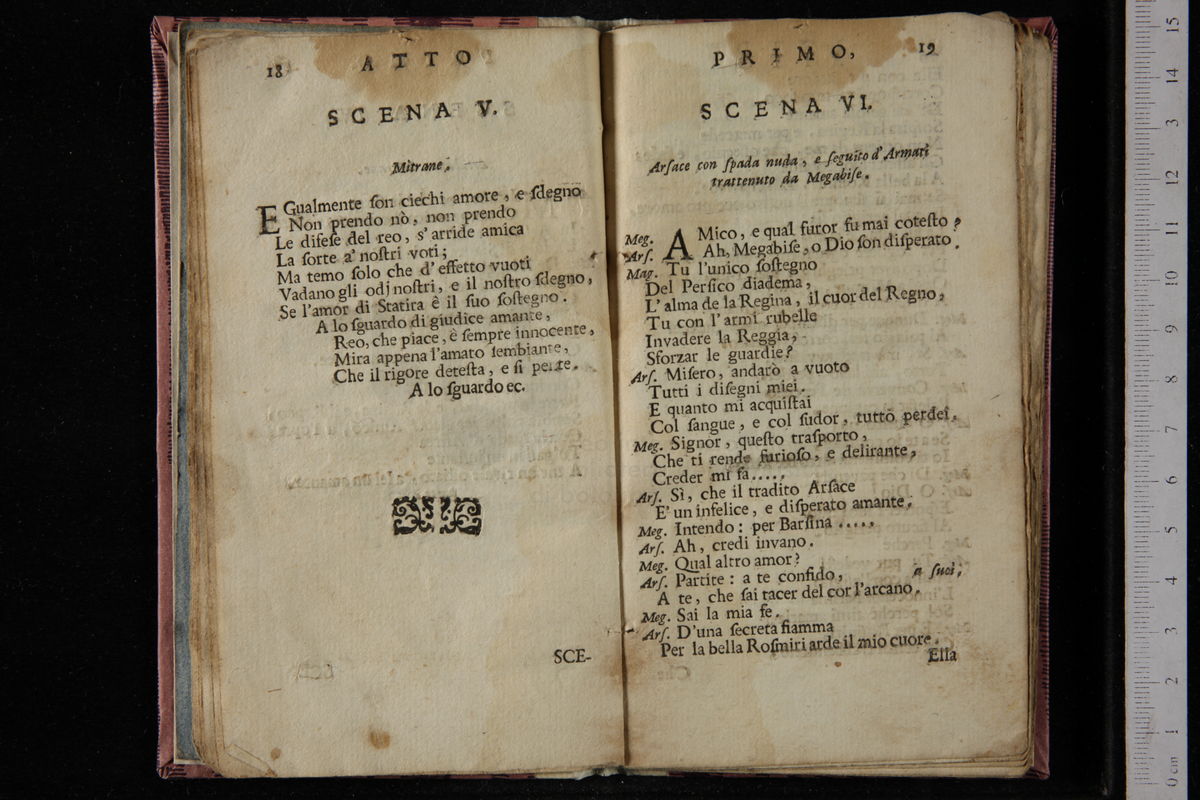 18 ATTO
SCENA V.
Mitrane.
EGualmente ſon ciechi amore, e ſdegno
Non prendo nò, non prendo
Le difeſe del reo, s'arride amica
La ſorte a' noſtri voti;
Ma temo ſolo che d'effetto vuoti
Vadano gli odj noſtri, e il noſtro ſdegno,
Se l'amor di Statira è il ſuo ſoſtegno.
A lo ſguardo di giudice amante,
Reo, che piace, è ſempre innocente,
Mira appena l'amato ſembiante,
Che il rigore deteſta, e ſi pente.
A lo ſguardo ec.
SCE-
PRIMO, 19
SCENA VI.
Arſace con ſpada nuda, e ſeguito d'Armati
trattenuto da Megabiſe.
Meg. AMico, e qual furor fu mai coteſto?
Arſ. Ah, Megabiſe, o Dio ſon diſperato.
Mag. Tu l'unico ſoſtegno
Del Perſico diadema,
L'alma de la Regina, il cuor del Regno,
Tu con l'armi rubelle
Invadere la Reggia,
Sforzar le guardie?
Arſ. Miſero, andarò a vuoto
Tutti i diſegni miei.
E quanto mi acquiſtai
Col ſangue, e col ſudor, tutto perdei.
Meg. Signor, queſto traſporto,
Che ti rende furioſo, e delirante,
Creder mi fa.....
Arſ. Sì, che il tradito Arſace
E' un infelice, e diſperato amante.
Meg. Intendo: per Barſina .....
Arſ. Ah, credi invano.
Meg. Qual altro amor?
Arſ. Partite: a te confido, a ſuoi;
A te, che ſai tacer del cor l'arcano.
Meg. Sai la mia fe.
Arſ. D'una ſecreta fiamma
Per la bella Roſmiri arde il mio cuore.
Ella